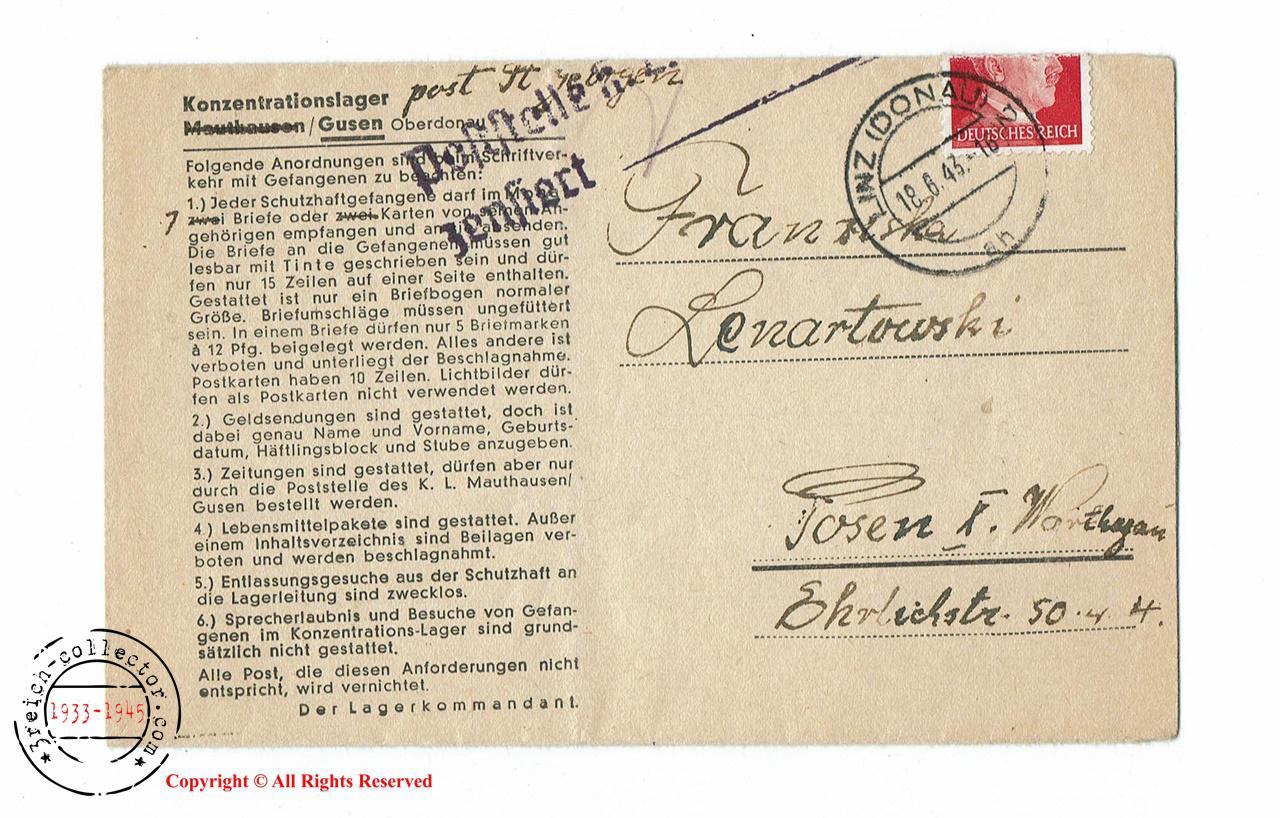 Konzentrationslager
post St. Georgen
Mauthausen/Gusen Oberdonau
Folgende Anordnungen sind beim Schriftver-
kehr mit Gefangenen zu beachten:
1.) Jeder Schutzhaftgefangene darf im
1 zwei Briefe oder zwei Karten von seinen An-
gehörigen empfangen und an sie absenden.
Die Briefe an die Gefangenen müssen gut
lesbar mit Tinte geschrieben sein und dür-
fen nur 15 Zeilen auf einer Seite enthalten.
Gestattet ist nur ein Briefbogen normaler
Größe. Briefumschläge müssen ungefüttert
sein. In einem Briefe dürfen nur 5 Briefmarken
à 12 Pfg. beigelegt werden. Alles andere ist
verboten und unterliegt der Beschlagnahme.
Postkarten haben 10 Zeilen. Lichtbilder dür-
fen als Postkarten nicht verwendet werden.
2.) Geldsendungen sind gestattet, doch ist
dabei genau Name und Vorname, Geburts-
datum, Häftlingsblock und Stube anzugeben.
3.) Zeitungen sind gestattet, dürfen aber nur
durch die Poststelle des K. L. Mauthausen/
Gusen bestellt werden.
4.) Lebensmittelpakete sind gestattet. Außer
einem Inhaltsverzeichnis sind Beilagen ver-
boten und werden beschlagnahmt.
5.) Entlassungsgesuche aus der Schutzhaft an
die Lagerleitung sind zwecklos.
6.) Sprecherlaubnis und Besuche von Gefan-
genen im Konzentrations-Lager sind grund-
sätzlich nicht gestattet.
Alle Post, die diesen Anforderungen nicht
entspricht, wird vernichtet.
Der Lagerkommandant.
Poststelle
zensiert
DEUTSCHES REICH
LINZ (DONAU) 2
18.6.43.-16
an
Franziska
Lenartowski
Posen I. Warthegau
Ehrlichstr. 50.w.4.
3reich-collector.com
1933-1945
Copyright © All Rights Reserved